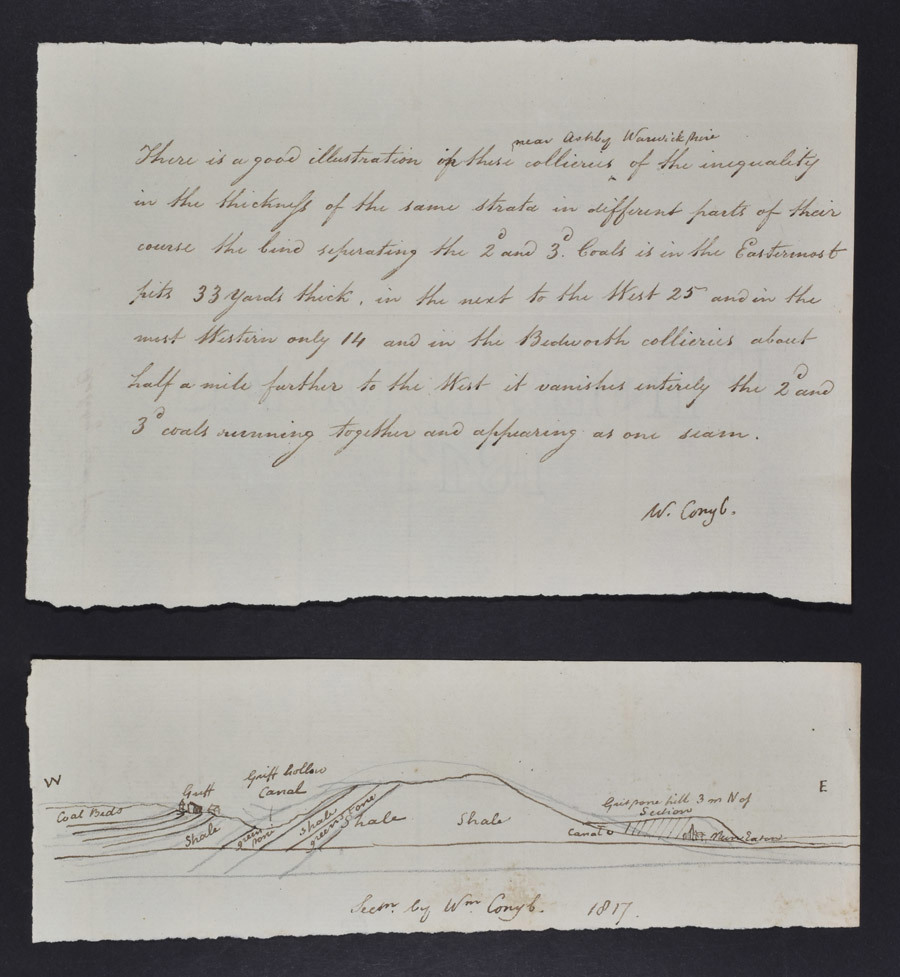 near Ashby Warwickshire
There is a good illustration in these collieries of the inequality
in the thickness of the same strata in different parts of their
course the bind seperating the 2d and 3d. Coals is in the Eastermost
pits 33 Yards thick, in the next to the West 25 and in the
most Western only 14 and in the Bedworth collieries about
half a mile further to the West it vanishes entirely the 2d and
3d coals running together and appearing as one seam.
W. Conyb.
W
E
Coal Beds
Griff
Griff hollow
Canal
Shale
green
stone
Shale
green stone
Shale
Shale
hill 3 m N of
Section
Canal
Nuneaton
Sectn. by Wm Conyb. 1817.